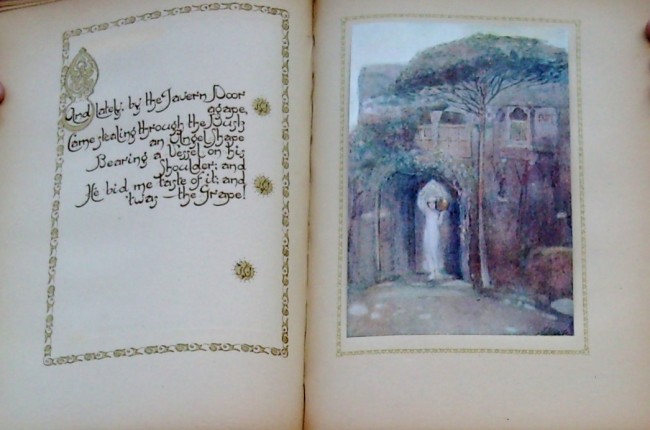 And lately, by the Tavern Door
agape,
Came stealing through the Dusk
an Angel Shape
Bearing a Vessel on his
Shoulder; and
He bid me taste of it; and
'twas — the Grape!